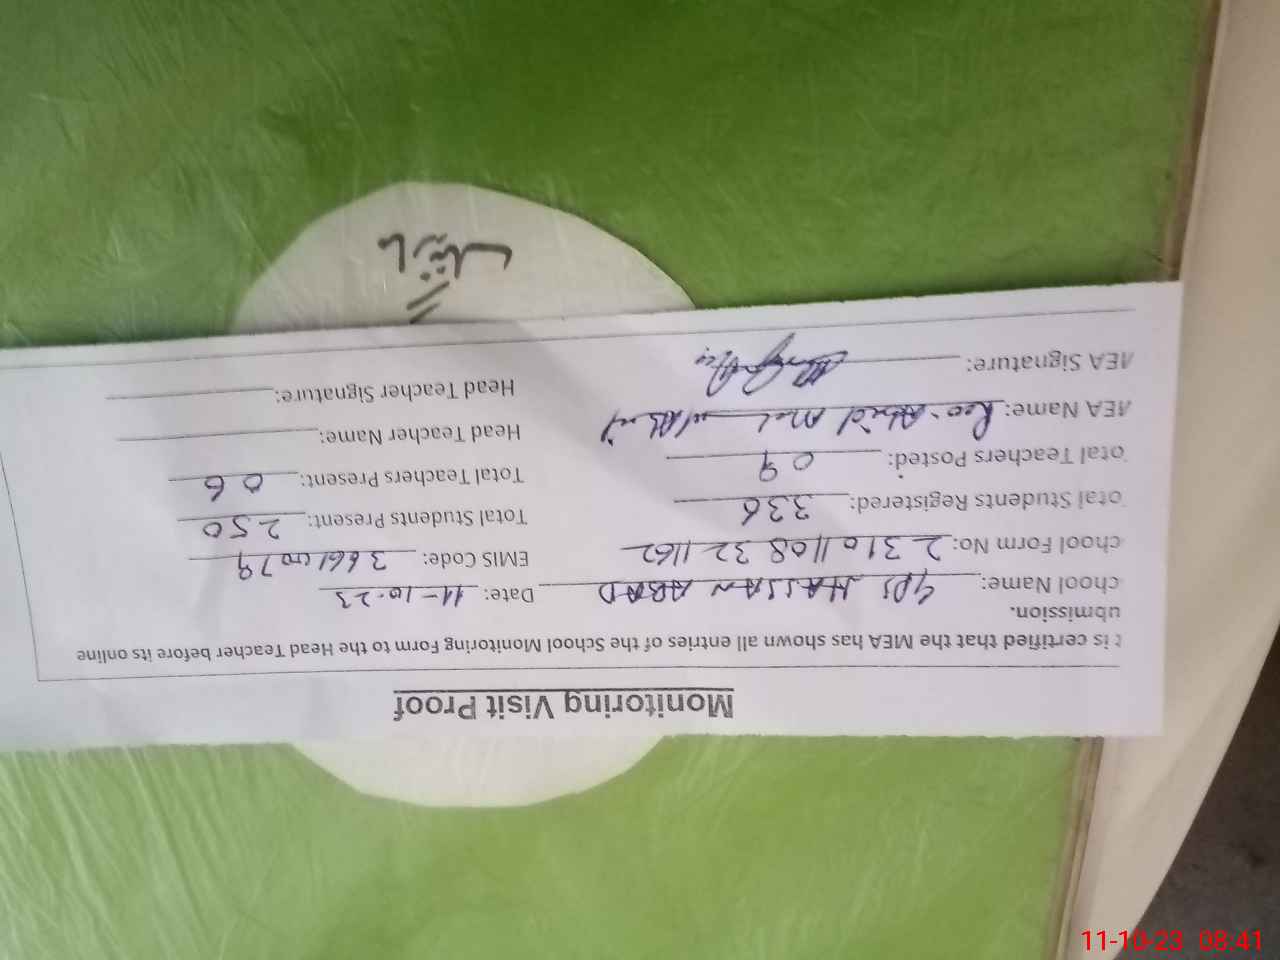 Monitoring Visit Proof
t is certified that the MEA has shown all entries of the School Monitoring Form to the Head Teacher before its online
ubmission.
chool Name: GPS HASSAN ABAD Date: 11-10-23
chool Form No: 2310110832 1162 EMIS Code:
otal Students Registered: 336 Total Students Present: 250
otal Teachers Posted: 09 Total Teachers Present: 06
MEA Name: Head Teacher Name:
MEA Signature: Head Teacher Signature:
11-10-23 08:41